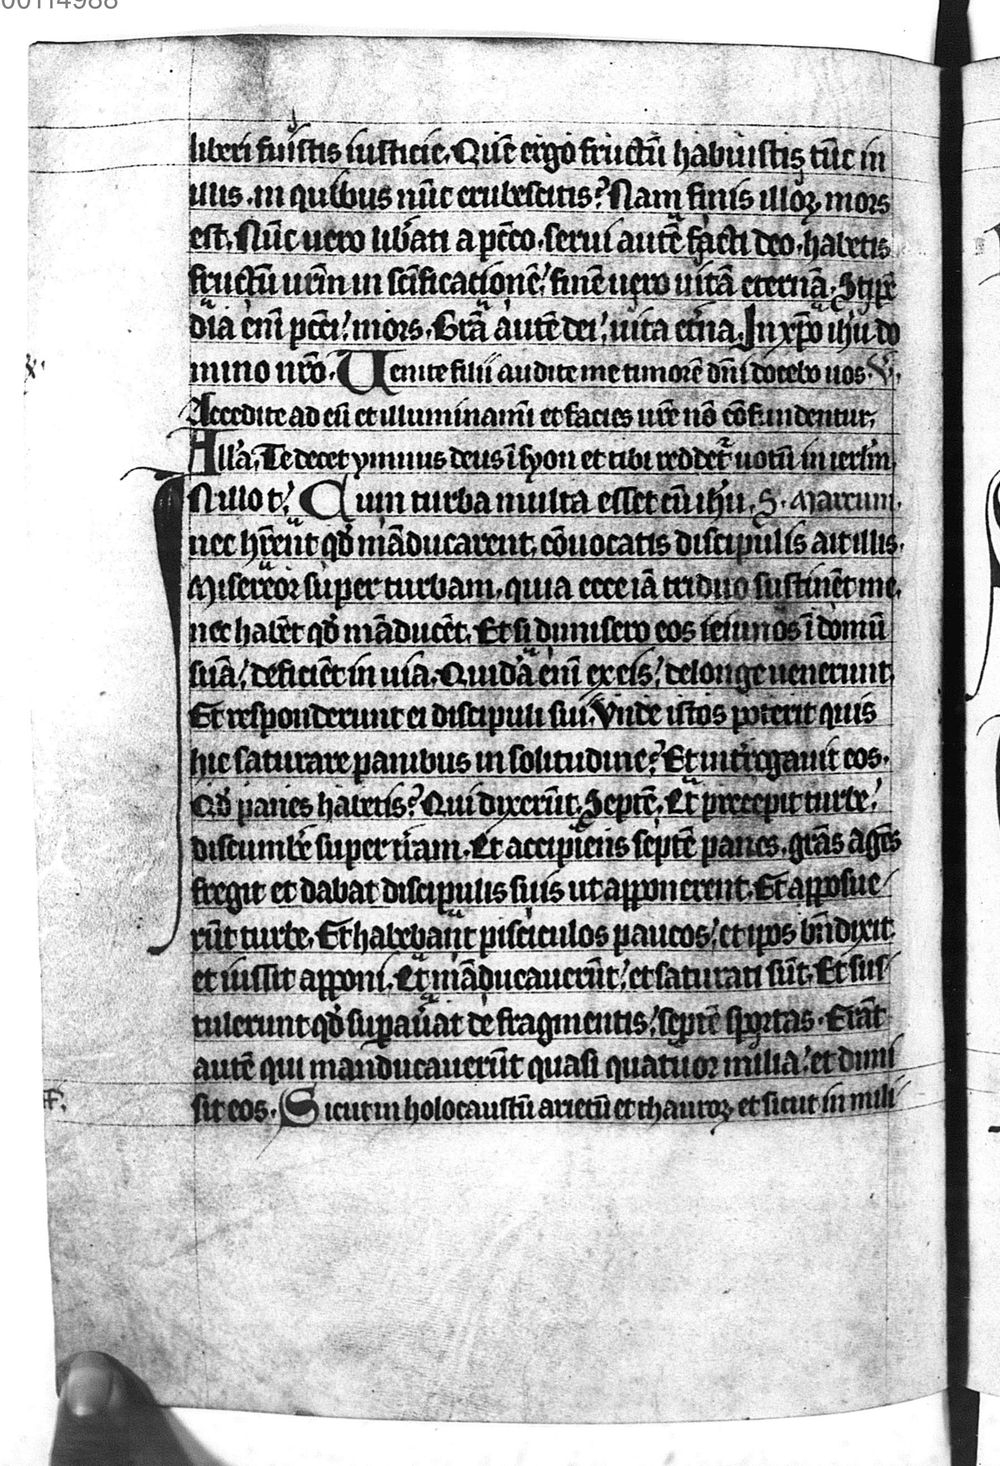 00114988
liberi fuistis iusticie. Quē ergo fructū habuistis tūc in
illis. in quibus nūc erubescitis? Nam finis illoꝝ mors
est. Nūc uero liƀati a pcc̄o. serui autē facti deo. habetis
fructū urm̄ in sc̄ificationē! finē uero uitā eternā. Stipē
dia eni᷑ pcc̄i! mors. Gr̄a autē dei! uita et̄na. In xp̄o ih̄u do
mino nr̄o. Uenite filii audite me timorē dn̄i docebo uos. V.
Accedite ad eū et illuminami᷑ et facies ur̄e nō cōfundentur.
All'a. Te decet ymnus deus ī syon et tibi reddet᷑ uotū in ierl'm.
IN illo t. Cum turba multa esset cū ih̄u. S. Marcum.
nec hr̄ent qd̄ māducarent. cōuocatis discipulis ait illis.
Misereor super turbam. quia ecce iā triduo sustinēt me.
nec habēt qd̄ māducēt. Et si dimisero eos ieiunos ī domū
suā! deficiēt in uia. Quidā eni᷑ ex eis! de longe uenerunt.
Et responderunt ei discipuli sui. Vnde istos poterit quis
hic saturare panibus in solitudine? Et int̄rogauit eos.
Qd̄ panes habetis? Qui dixerūt. Septē. Et precepit turbe!
discumƀe super t̄ram. Et accipiens septē panes. gr̄as agēs
fregit et dabat discipulis suis ut apponerent. Et apposue
rūt turbe. Et habebant pisciculos paucos! et ip̄os bn̄dixit
et iussit apponi. Et māducauerūt! et saturati sūt. Et sus
tulerunt qd̄ suꝑau̓at de fragmentis! septē sportas. Erāt
autē qui manducauerūt quasi quatuor milia! et dimi
sit eos. Sicut in holocaustū arietū et thauroꝝ et sicut in mili